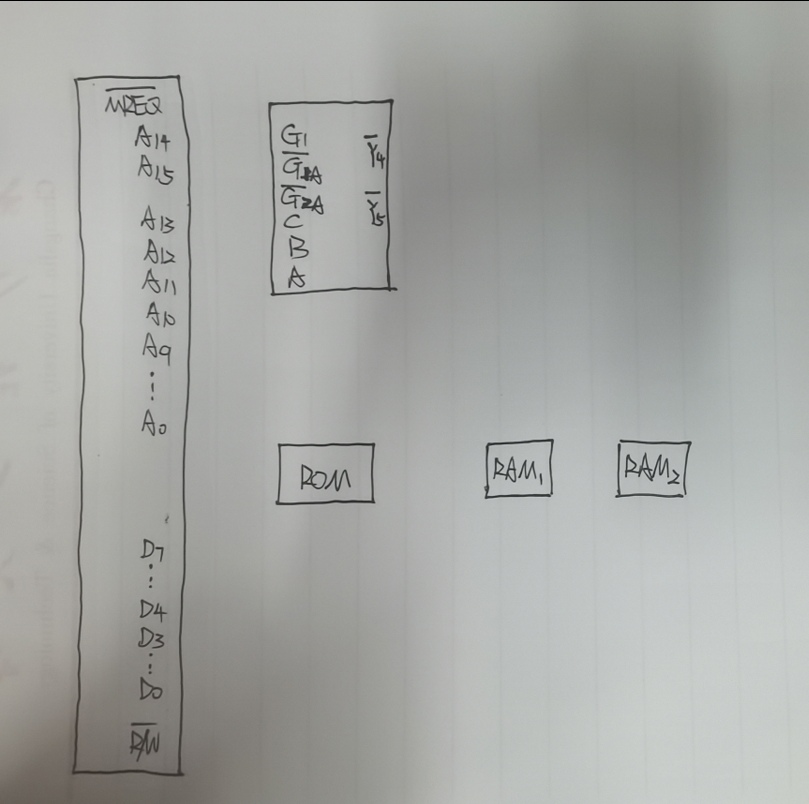 M̅R̅E̅Q̅
A14
A15
A13
A12
A11
A10
A9
⋮
A0
D7
⋮
D4
D3
⋮
D0
R̅/W
G1
G̅2A
G̅2A
C
B
A
Y̅4
Y̅5
ROM
RAM1
RAM2